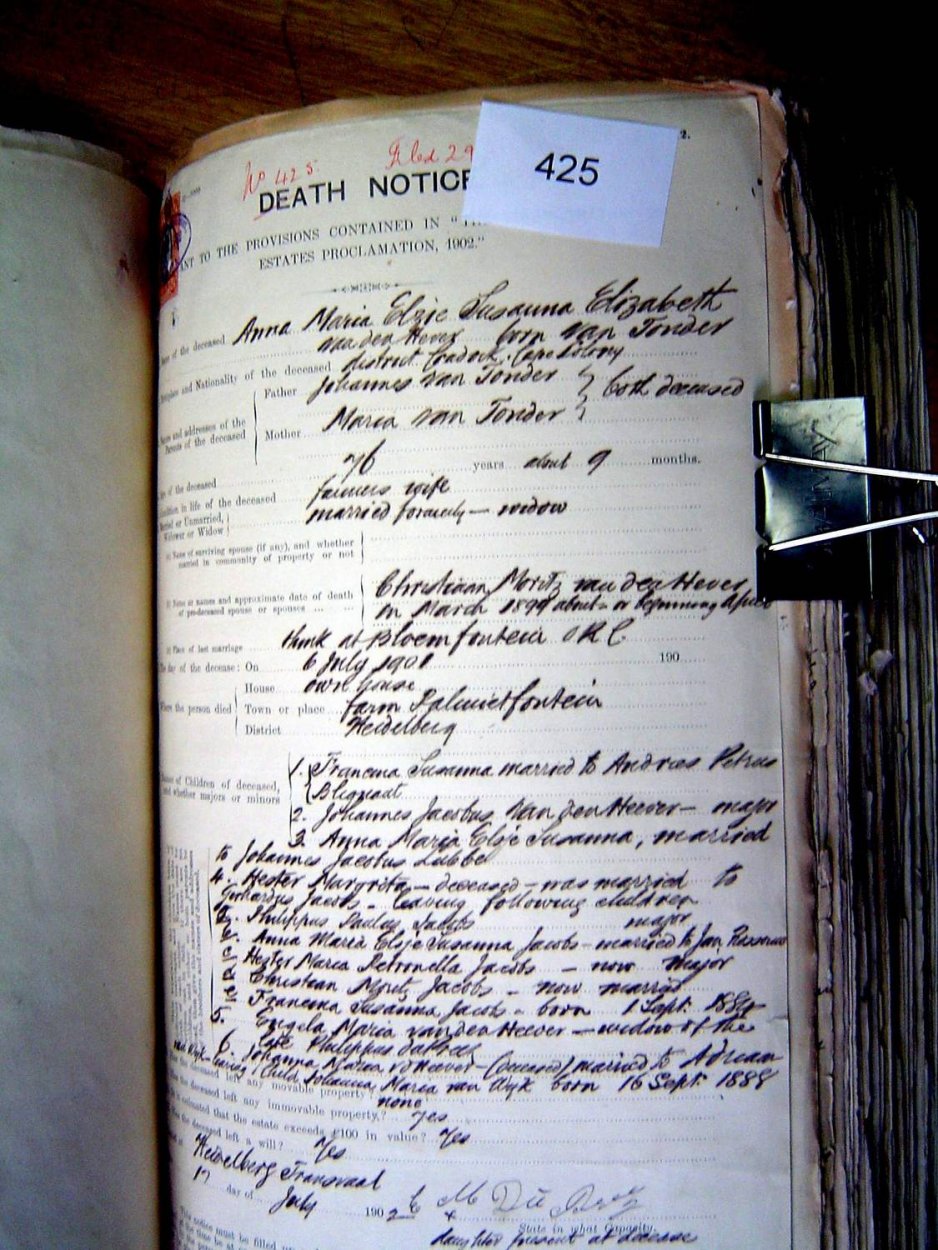 No 425 Filed 29
425
2.
DEATH NOTICE
TO THE PROVISIONS CONTAINED IN "
ESTATES PROCLAMATION, 1902."
of the deceased Anna Maria Elsie Susanna Elizabeth
van den Hever born van Tonder
and Nationality of the deceased district Cradock, Cape Colony
Names and addresses of the Parents of the deceased
Father Johannes van Tonder } both deceased
Mother Maria van Tonder
of the deceased 76 years about 9 months.
Condition in life of the deceased farmers wife
Married or Unmarried, Widower or Widow married formerly — widow
(a) Name of surviving spouse (if any), and whether
married in community of property or not
Name or names and approximate date of death
of predeceased spouse or spouses
Christiaan Moritz van den Hever
in March 1899 about or beginning April
Place of last marriage think at Bloemfontein ORC
The day of the decease: On 6 July 1901 190
Where the person died
House own house
Town or place farm Palmietfontein
District Heidelberg
Names of Children of deceased,
and whether majors or minors
1. Francina Susanna married to Andries Petrus
Bliquaut
2. Johannes Jacobus van den Heever — major
3. Anna Maria Elsje Susanna, married
to Johannes Jacobus Lubbe
4. Hester Margrita — deceased — was married to
Gerhardus Jacobs — leaving following children
a. Philippus Paulus Jacobs major
b. Anna Maria Elsje Susanna Jacobs — married to Jan
c. Hester Maria Petronella Jacobs — now major
d. Christian Moritz Jacobs — now married
e. Francina Susanna Jacobs — born 1 Sept. 1884
5. Engela Maria van den Heever — widow of the
late Philippus du Preez
6. Johanna Maria vd Heever — (deceased) married to Adrian
van Wyk — leaving 1 child Johanna Maria van Wyk born 16 Sept. 1888
the deceased left any movable property? none
the deceased left any immovable property? yes
estimated that the estate exceeds £100 in value? Yes
the deceased left a will? Yes
Heidelberg Transvaal
17 day of July 1902 E M Du Preez
State in what Capacity.
daughter present at decease
This notice must be filled